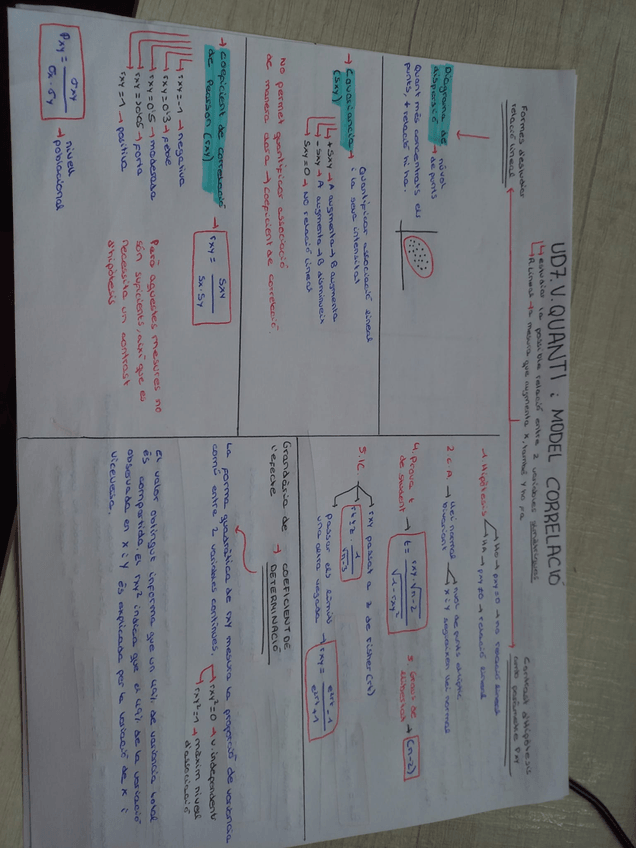 UD7. V. QUANTI i MODEL CORRELACIÓ
↳ estudiar la possible relació entre 2 variables
↳ R. Lineal → la mesura que augmenta X, també Y ho fa
Formes d'estudiar
relació lineal
Diagrama de dispersió → núvol de punts
quant més concentrats els
punts, + relació hi ha.
→ Covariància → Quantificar associació lineal
(Sxy) i la seva intensitat
+Sxy → A augmenta → B augmenta
-Sxy → A augmenta → B disminueix
Sxy = 0 → No relació lineal
No permet quantificar associació
de manera clara → Coeficient de correlació.
→ Coeficient de correlació → rxy = Sxy / Sx · Sy
de Pearson (rxy)
rxy = -1 → negativa
rxy = 0'3 → feble
rxy = 0'5 → moderada
rxy = >0'8 → forta
rxy = 1 → positiva
Però aquestes mesures no
són suficients, així que es
necessita un contrast
d'hipòtesis
ρxy = σxy / σx · σy → nivell
poblacional
Contrast d'hipòtesis
1. Hipòtesis
H0 → ρxy = 0 → no relació lineal
HA → ρxy ≠ 0 → relació lineal
2. C.A → llei normal
bivariant
núvol de punts el·líptic
X i Y segueixen llei normal
4. Prova t
de Student → t = rxy √n-2 / √1-rxy²
3. Graus de
llibertat → (n-2)
5. IC
rxy passat a z de Fisher
1 / √n-3
passar els límits
una altra vegada → rxy =
Grandària de
l'efecte → COEFICIENT DE
DETERMINACIÓ
La forma quadràtica de rxy mesura la proporció de variància
comú entre 2 variables contínues.
rxy² = 0 → v. independent
rxy² = 1 → màxim nivell
d'associació
El valor obtingut informa que un 49% de variància total
és compartida. El rxy² indica que el 49% de la variació
observada en X i Y és explicada per la variació de X i
viceversa.